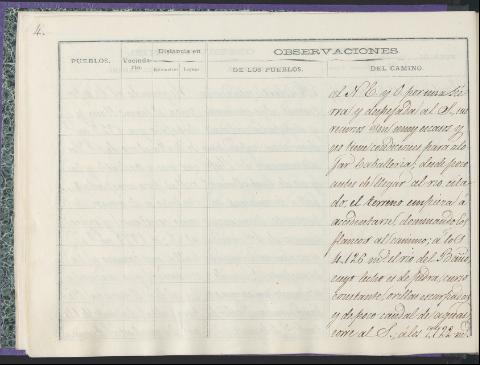 4.
PUEBLOS.
Vecinda-
rio.
Distancia en
OBSERVACIONES
DE LOS PUEBLOS.
DEL CAMINO
al N. E. y O por una Sie-
rra y despejada al S, sus
recursos son muy escasos y
no tiene condiciones para alo-
jar Caballeria; desde poco
antes de llegar al rio cita-
do, el terreno empieza á
accidentarse, dominando los
flancos al camino; á los
4.126 mts el rio del Baño,
cuyo lecho es de piedra, curso
constante, orillas escarpadas
y de poco caudal de aguas
corre al S, á los 7.722 mts